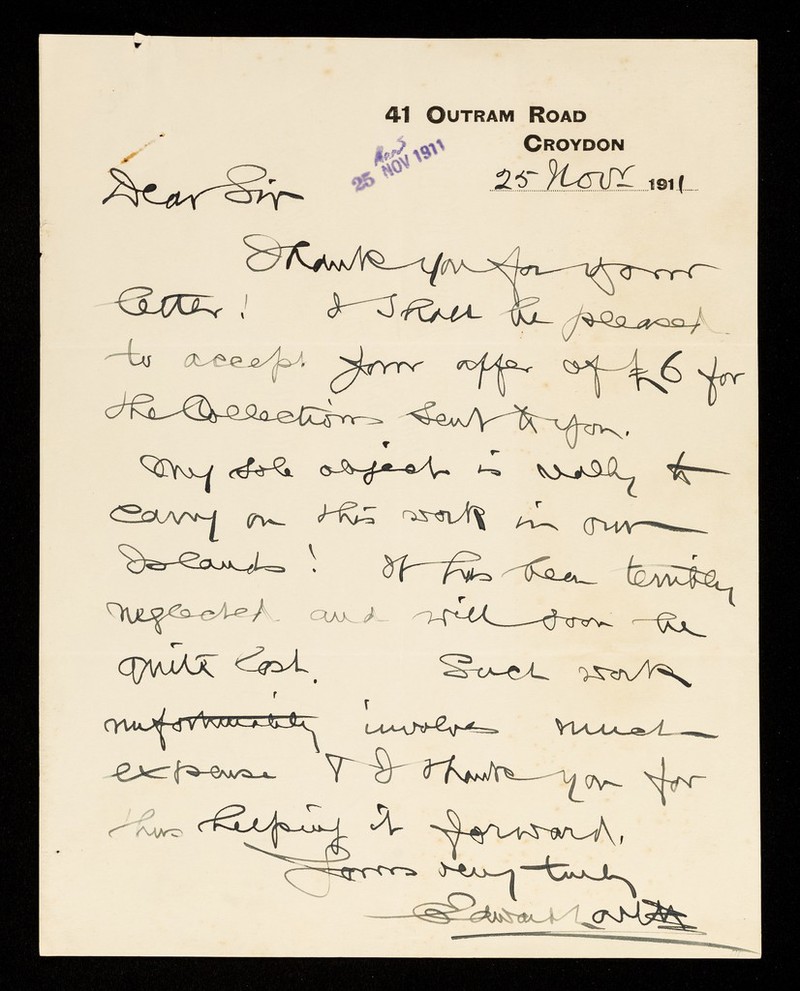 41 OUTRAM ROAD
CROYDON
25 NOV 1911
25 Novr 1911
Dear Sir
Thank you for your
letter! I shall be pleased
to accept your offer of £6 for
the Collections sent to you.
My sole object is really to
carry on this work in our
Islands! It has been terribly
neglected and will soon be
quite lost. Such work
unfortunately involves much
expense & I thank you for
thus helping it forward.
Yours very truly
Edward Lovett